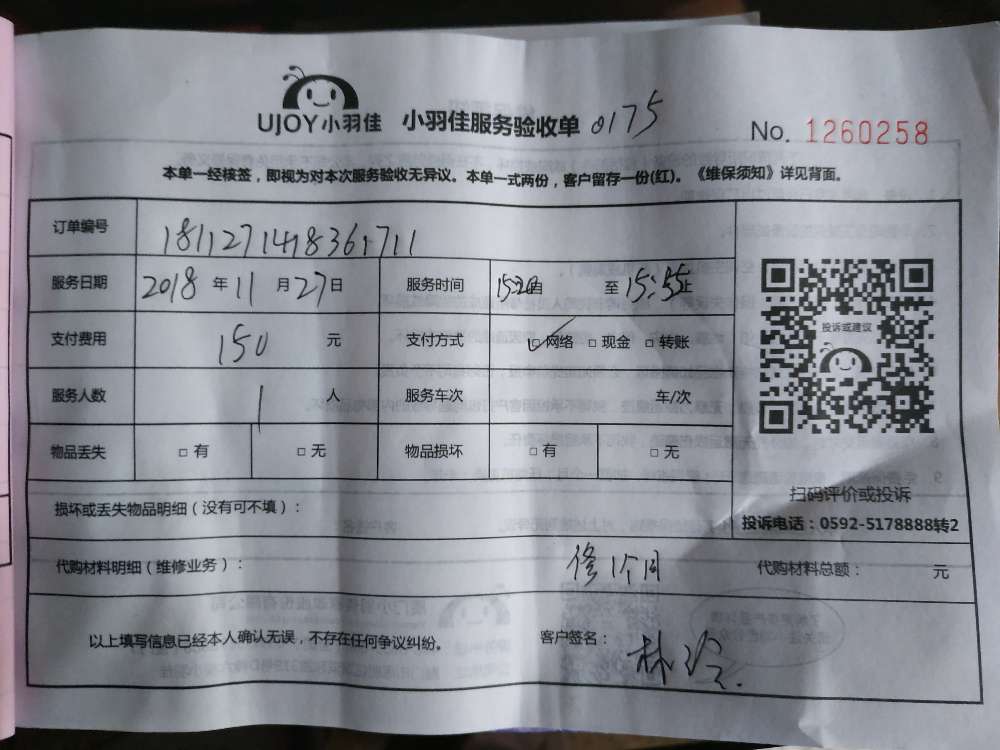 UJOY小羽佳 小羽佳服务验收单 0175
No. 1260258
本单一经核签，即视为对本次服务验收无异议。本单一式两份，客户留存一份(红)。《维保须知》详见背面。
订单编号 1811271418361711
服务日期 2018 年 11 月 27 日 服务时间 15:20 自 至 15:35 止
支付费用 150 元 支付方式 ☑网络 □现金 □转账
服务人数 1 人 服务车次 车/次
物品丢失 □有 □无 物品损坏 □有 □无
投诉或建议
扫码评价或投诉
投诉电话：0592-5178888转2
损坏或丢失物品明细（没有可不填）：
代购材料明细（维修业务）： 修1个月 代购材料总额： 元
以上填写信息已经本人确认无误，不存在任何争议纠纷。 客户签名： 林